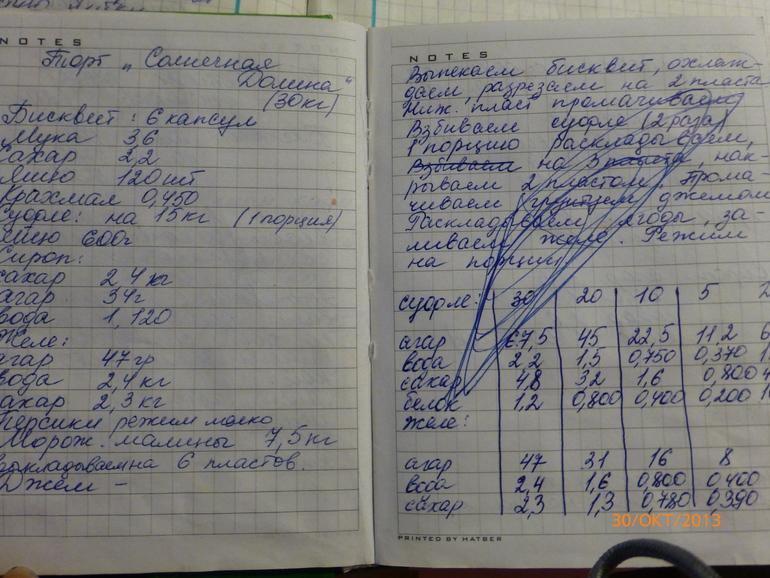 NOTES
Торт „ Солнечная
Долина“
(30кг)
Бисквит: 6 капсул
Мука 3,6
Сахар 2,2
яйцо 120 шт
Крахмал 0,450
Суфле: на 15кг (1 порция)
яйцо 600г
Сироп:
сахар 2,4 кг
агар 34г
вода 1,120
Желе:
агар 47гр
вода 2,4 кг
сахар 2,3 кг
Персики режим мелко
Морож. малины 7,5 кг
выкладываем на 6 пластов.
Джем –
NOTES
Выпекаем бисквит, охлаж-
даем, разрезаем на 2 пласта
Ниж. пласт промачиваем
Взбиваем суфле (2 раза)
1 порцию раскладываем,
Взбиваем на 3 пласта, нак-
рываем 2 пластом. Прома-
чиваем джемом
Раскладываем ягоды, за-
ливаем желе. Режим
на порции
суфле: 30 20 10 5 2
агар 67,5 45 22,5 11,2 6
вода 2,2 1,5 0,750 0,370
сахар 4,8 3,2 1,6 0,800
белок 1,2 0,800 0,400 0,200
Желе:
агар 47 31 16 8
вода 2,4 1,6 0,800 0,400
сахар 2,3 1,3 0,780 0,390
30/ОКТ/2013
PRINTED BY HATBER